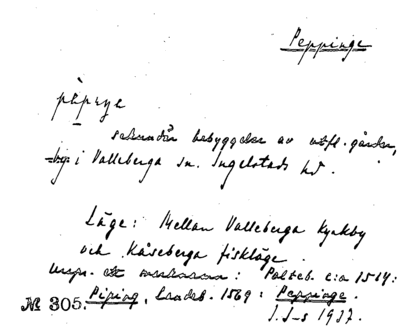 Peppinge
pæpiŋe
sekundär bebyggelse av utfl. gårdar,
i Valleberga sn. Ingelstads hd.
Läge: Mellan Valleberga Kyrkby
och Kåseberga fiskläge.
urspr. : Palteb. c:a 1514:
№ 305. Piping, Landeb. 1569: Peppinge.
I. I-s 1937.